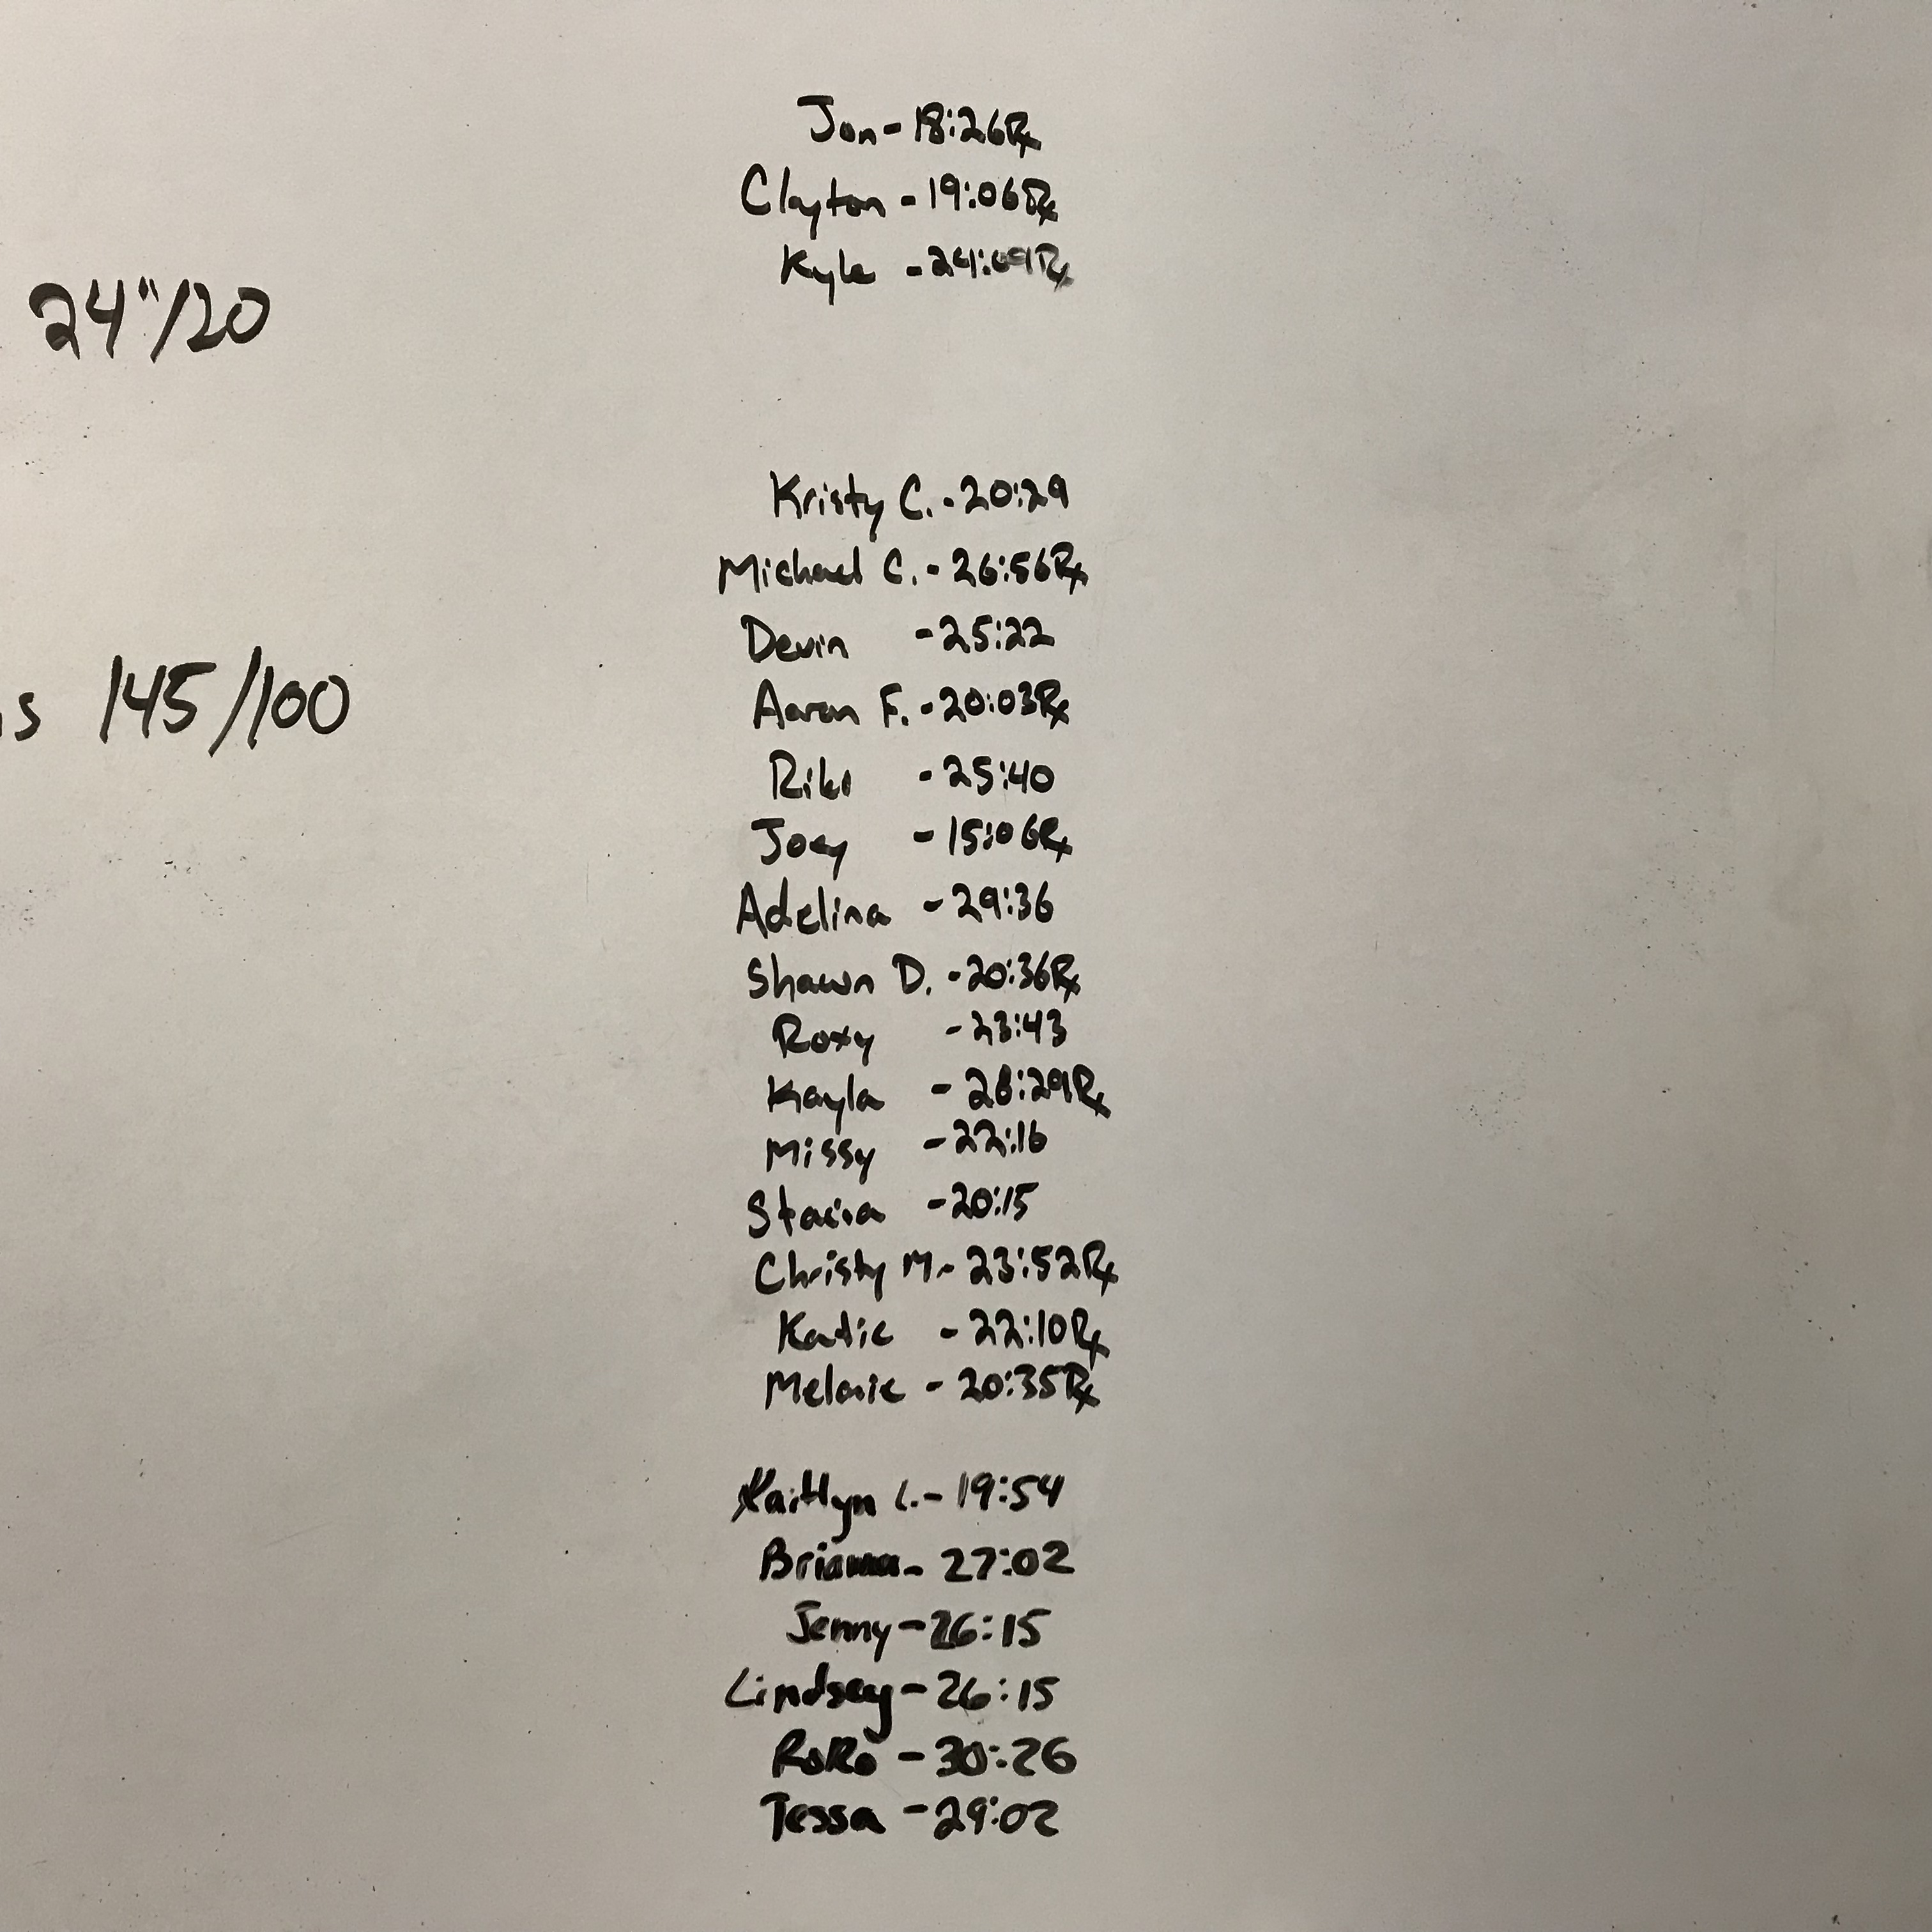 Jon - 18:26 Rx
Clayton - 19:06 Rx
Kyle - Rx
24"/20
Kristy C. - 20:29
Michael C. - 26:56 Rx
Devin - 25:22
s 145/100
Aaron F. - 20:03 Rx
Riki - 25:40
Joey - 15:06 Rx
Adelina - 29:36
Shawn D. - 20:36 Rx
Roxy - 23:43
Kayla - 28:29 Rx
Missy - 22:16
Stacia - 20:15
Christy M. - 23:52 Rx
Katie - 22:10 Rx
Melanie - 20:35 Rx
Kaitlyn L. - 19:54
Brianna - 27:02
Jenny - 26:15
Lindsey - 26:15
RoRo - 30:26
Tessa - 29:02